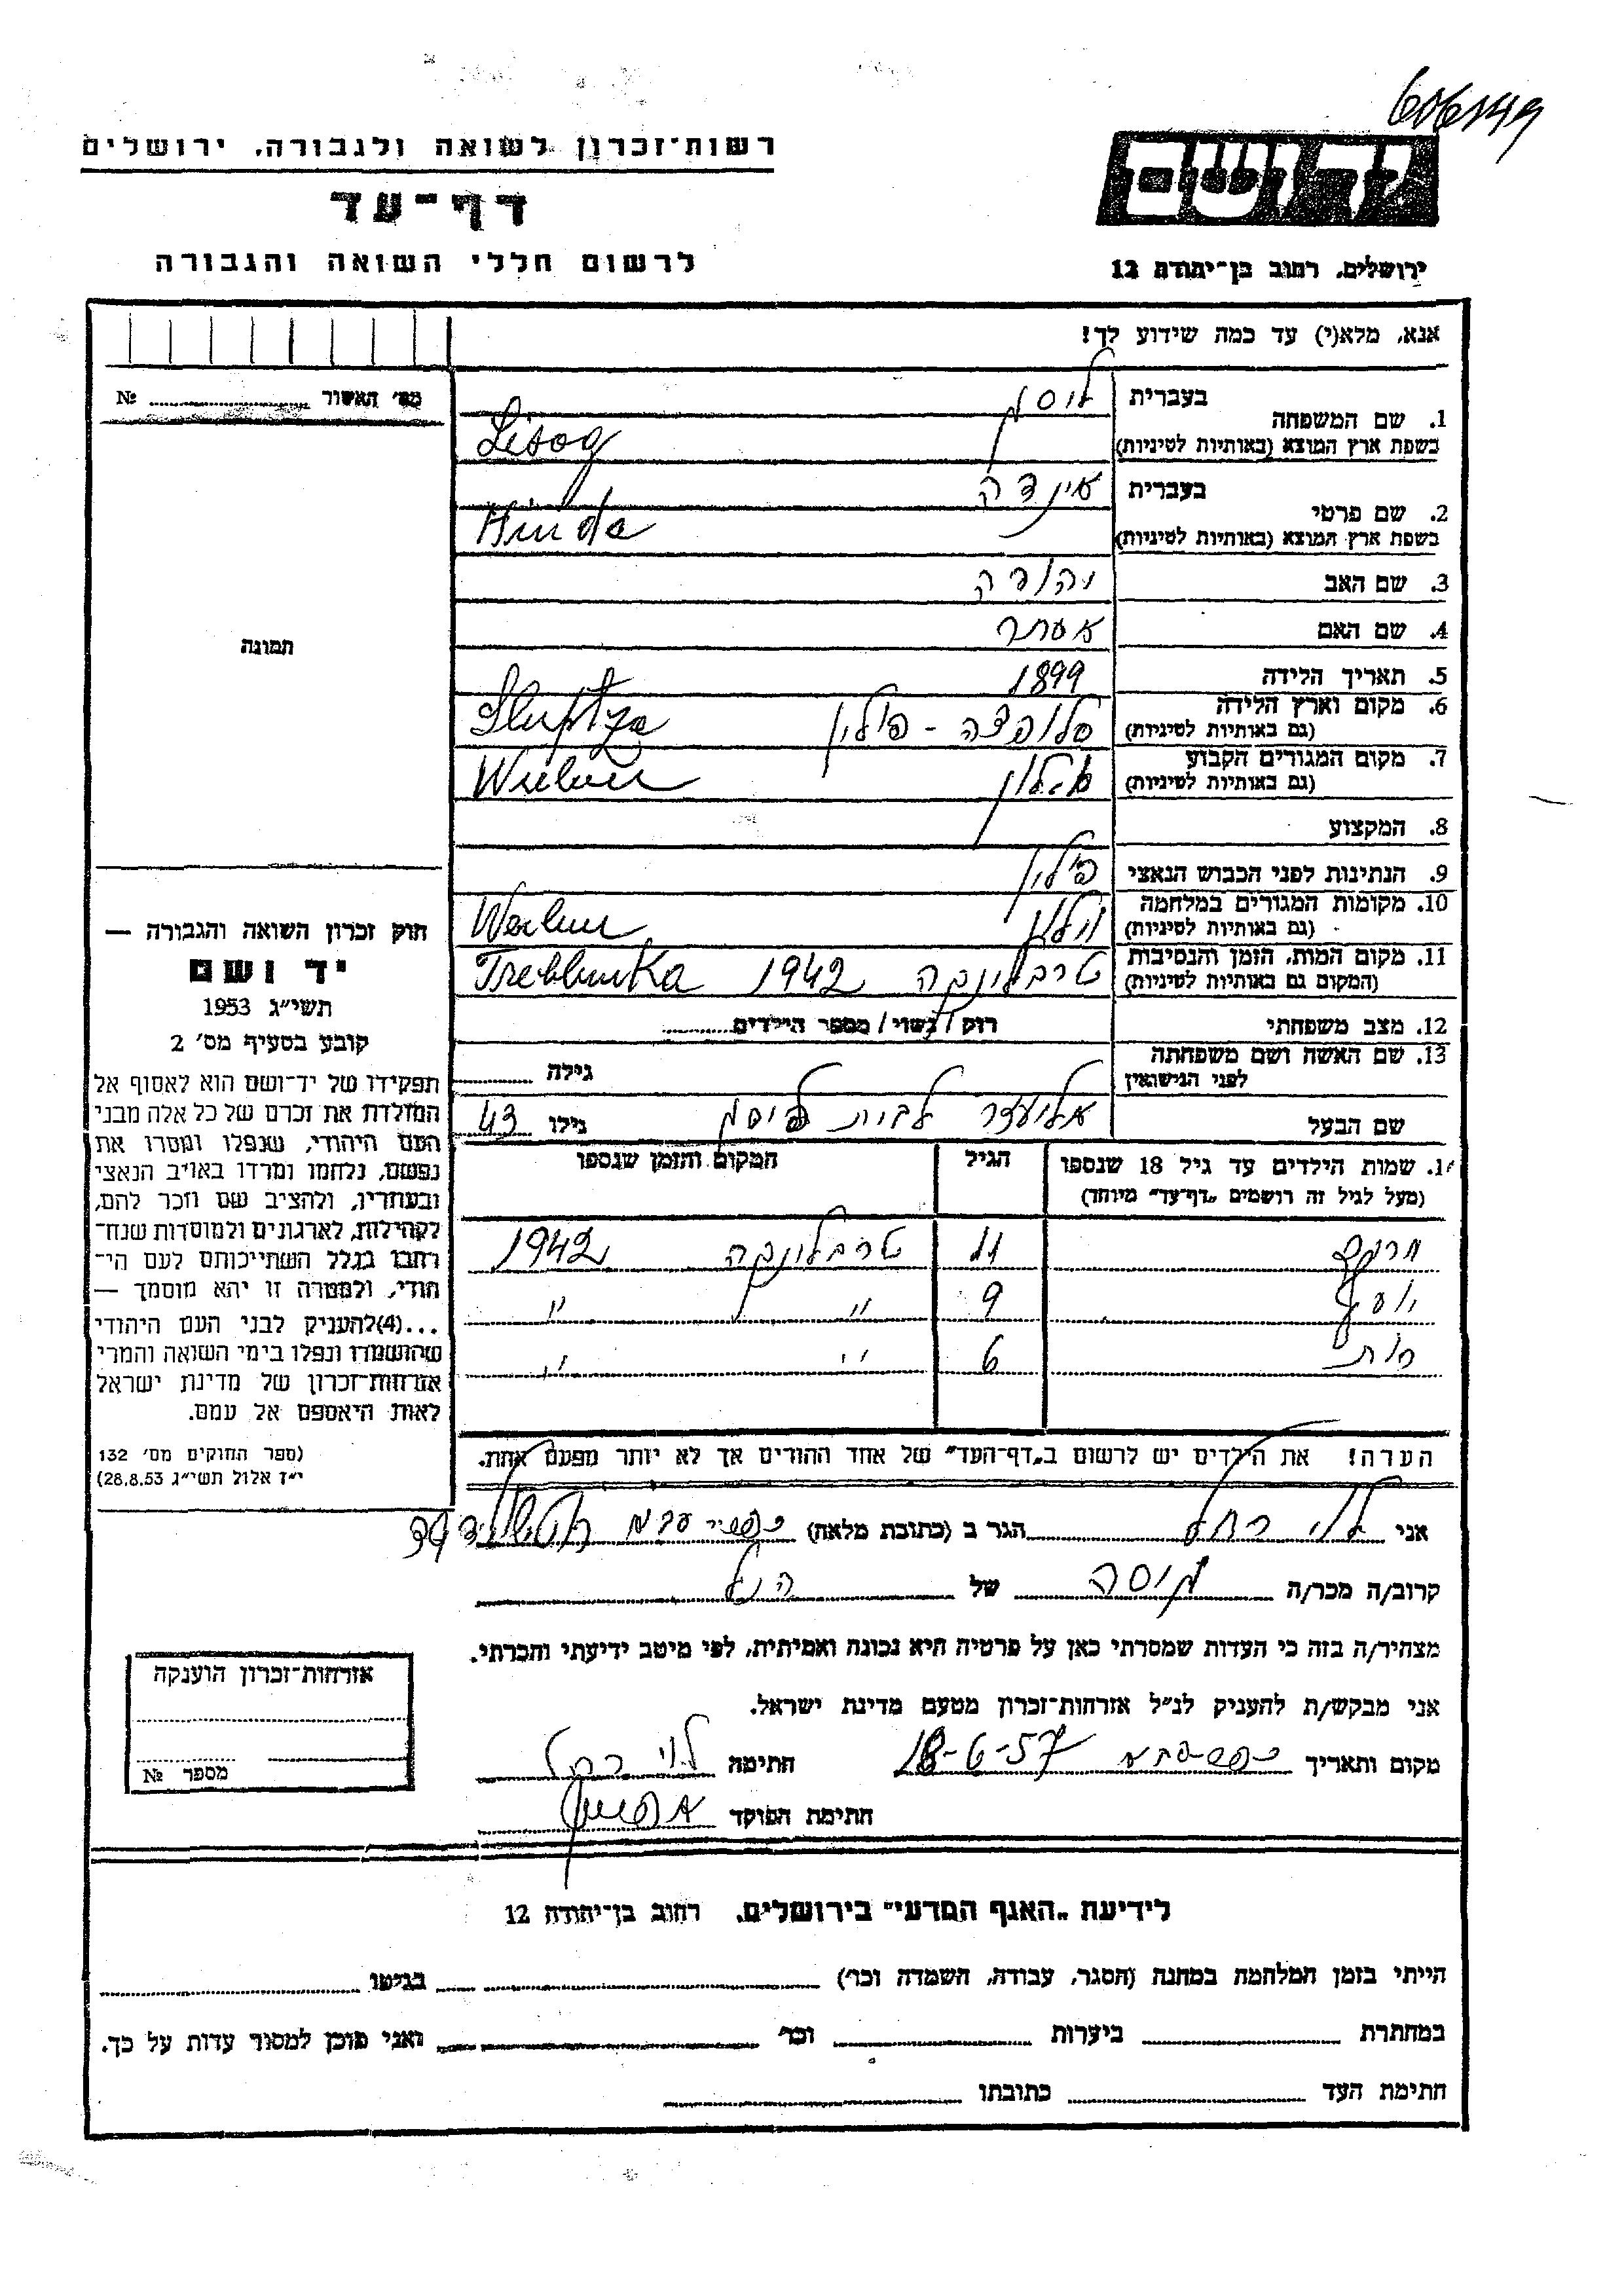 606149
רשות־זכרון לשואה ולגבורה, ירושלים
דף־עד
לרשום חללי השואה והגבורה
יד ושם
ירושלים, רחוב בן־יהודה 12
אנא, מלא(י) עד כמה שידוע לך!
מס׳ האשור № 
תמונה
1. שם המשפחה
בעברית
בשפת ארץ המוצא (באותיות לטיניות)
2. שם פרטי
בעברית
בשפת ארץ המוצא (באותיות לטיניות) Hinda
3. שם האב יהודה
4. שם האם אסתר
5. תאריך הלידה 1899
6. מקום וארץ הלידה סלופצה - פולין Sluptza
(גם באותיות לטיניות)
7. מקום המגורים הקבוע
(גם באותיות לטיניות)
8. המקצוע
9. הנתינות לפני הכבוש הנאצי פולין
10. מקומות המגורים במלחמה
(גם באותיות לטיניות)
11. מקום המות, הזמן והנסיבות טרבלינקה 1942 Treblinka
(המקום גם באותיות לטיניות)
12. מצב משפחתי רוק / נשוי / מספר הילדים
13. שם האשה ושם משפחתה
לפני הנישואין גילה
שם הבעל אליעזר לבית גילו 43
14. שמות הילדים עד גיל 18 שנספו הגיל המקום והזמן שנספו
(מעל לגיל זה רושמים „דף־עד” מיוחד)
11 טרבלינקה 1942
יוסף 9 " "
רות 6 " "
הערה! את הילדים יש לרשום ב„דף־העד” של אחד ההורים אך לא יותר מפעם אחת.
חוק זכרון השואה והגבורה —
יד ושם
תשי״ג 1953
קובע בסעיף מס׳ 2
תפקידו של יד־ושם הוא לאסוף אל
המולדת את זכרם של כל אלה מבני
העם היהודי, שנפלו ומסרו את
נפשם, נלחמו ומרדו באויב הנאצי
ובעוזריו, ולהציב שם וזכר להם,
לקהילות, לארגונים ולמוסדות שנח־
רבו בגלל השתייכותם לעם הי־
הודי, ולמטרה זו יהא מוסמך —
...(4)להעניק לבני העם היהודי
שהושמדו ונפלו בימי השואה והמרי
אזרחות־זכרון של מדינת ישראל
לאות היאספם אל עמם.
(ספר החוקים מס׳ 132
י״ז אלול תשי״ג 28.8.53)
אני לוי רחל הגר ב (כתובת מלאה)
קרוב/ה מכר/ה של הנ"ל
מצהיר/ה בזה כי העדות שמסרתי כאן על פרטיה היא נכונה ואמיתית, לפי מיטב ידיעתי והכרתי.
אני מבקש/ת להעניק לנ״ל אזרחות־זכרון מטעם מדינת ישראל.
מקום ותאריך 18-6-57 חתימה לוי רחל
חתימת הפוקד
אזרחות־זכרון הוענקה
מספר №
לידיעת „האגף המדעי” בירושלים, רחוב בן־יהודה 12
הייתי בזמן המלחמה במחנה (הסגר, עבודה, השמדה וכו׳) בגיטו
במחתרת ביערות וכו׳ ואני מוכן למסור עדות על כך.
חתימת העד כתובתו